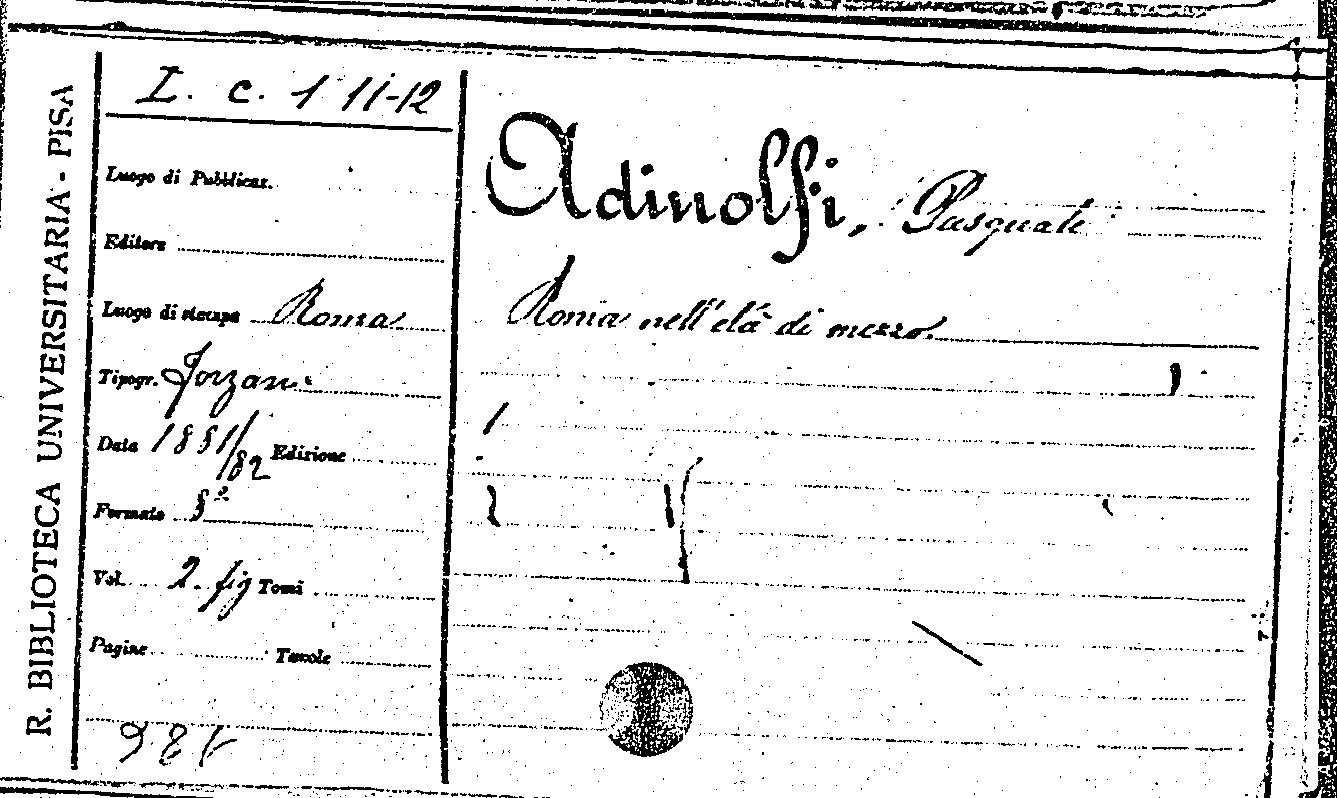 R. BIBLIOTECA UNIVERSITARIA - PISA
I. c. 1 11-12
Luogo di Pubblicaz.
Editore
Luogo di stampa Roma
Tipogr. Forzani
Data 1881/82 Edizione
Formato 8º
Vol. 2. fig Tomi
Pagine Tavole
Adinolfi, Pasquale
Roma nell'età di mezzo.